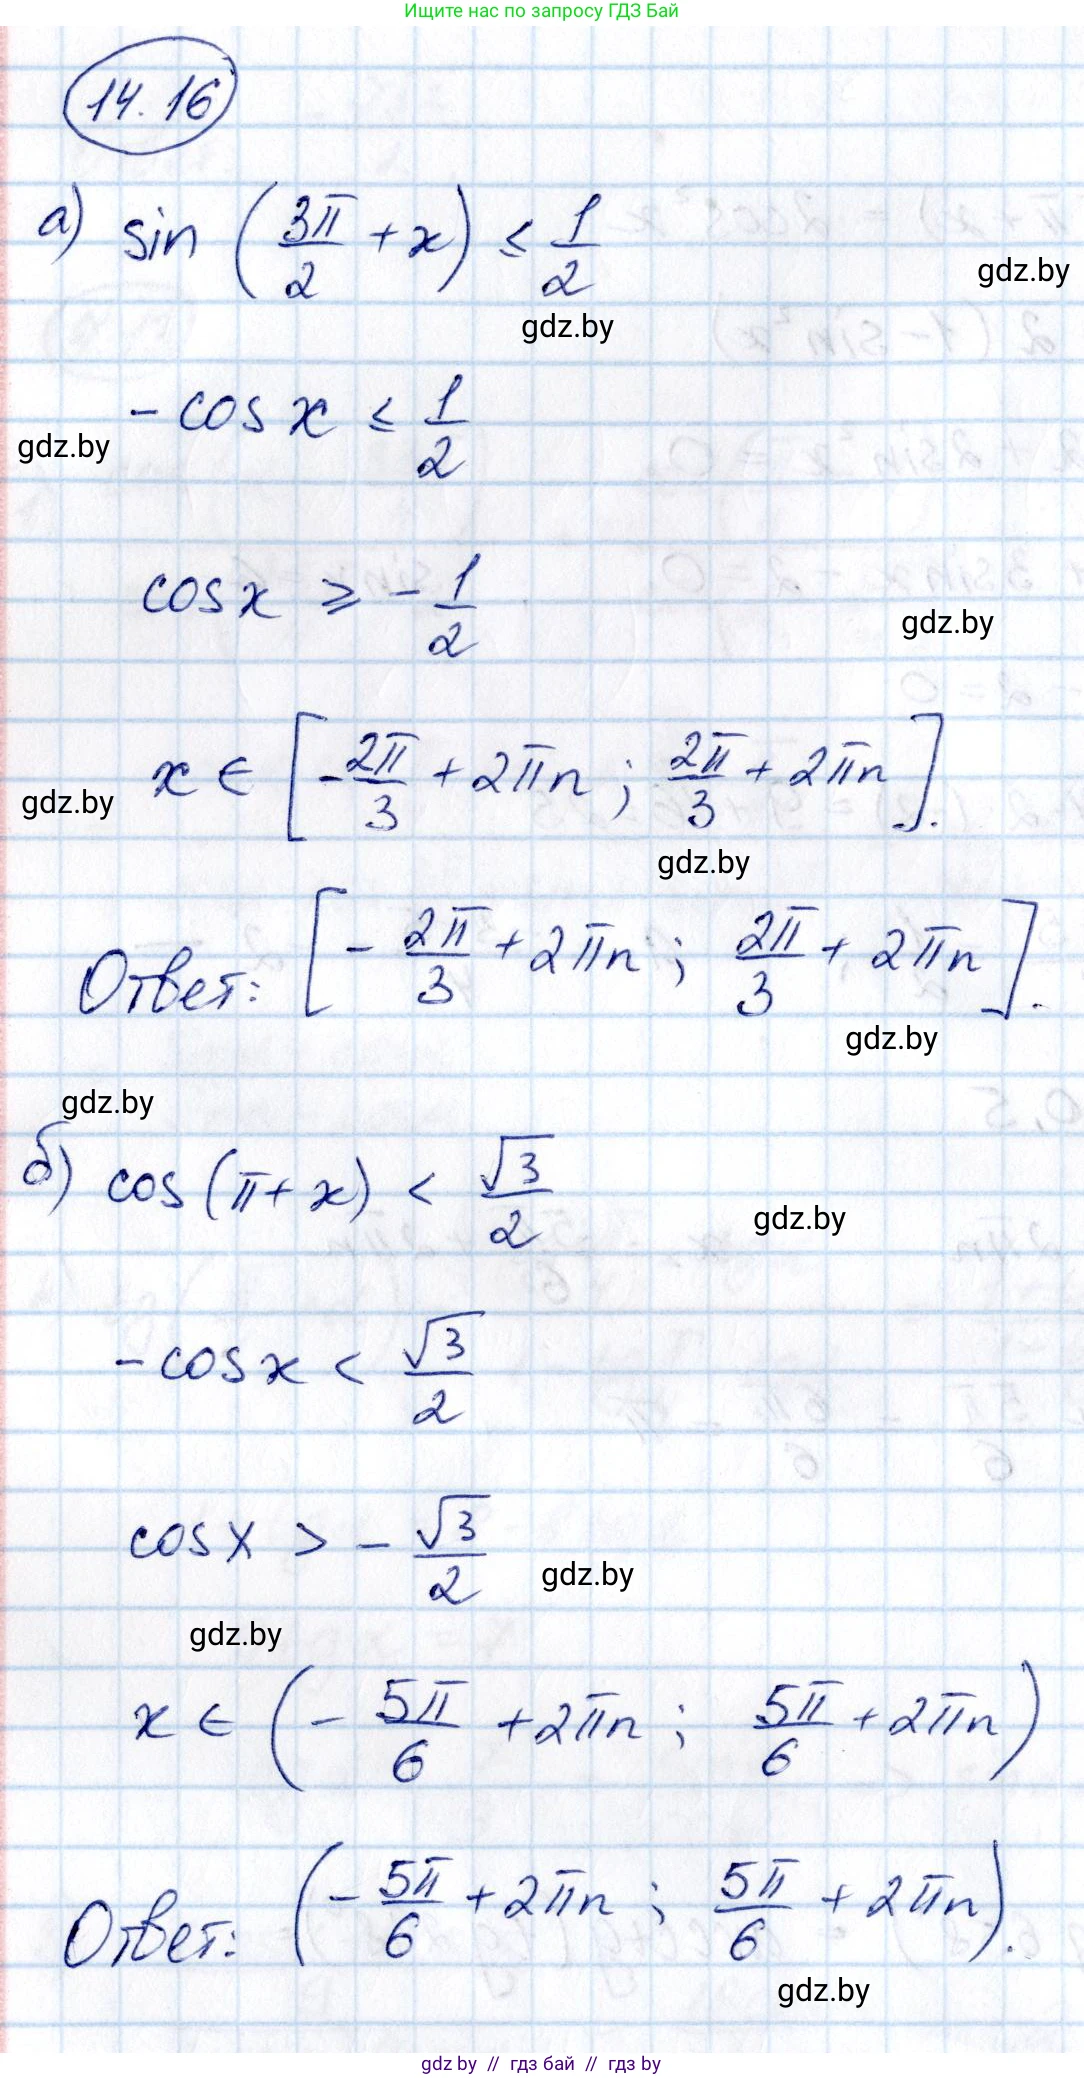 Ищите нас по запросу ГДЗ Бай
14.16
а) sin (3π/2 + x) ≤ 1/2
gdz.by
gdz.by
- cos x ≤ 1/2
gdz.by
cos x ⩾ - 1/2
gdz.by
x ∈ [-2π/3 + 2πn ; 2π/3 + 2πn].
gdz.by
gdz.by
Ответ: [- 2π/3 + 2πn ; 2π/3 + 2πn].
gdz.by
gdz.by
б) cos (π + x) < √3/2
gdz.by
- cos x < √3/2
cos x > - √3/2
gdz.by
gdz.by
x ∈ (- 5π/6 + 2πn ; 5π/6 + 2πn)
Ответ: (- 5π/6 + 2πn ; 5π/6 + 2πn).
gdz.by
gdz by // гдз бай // гдз by